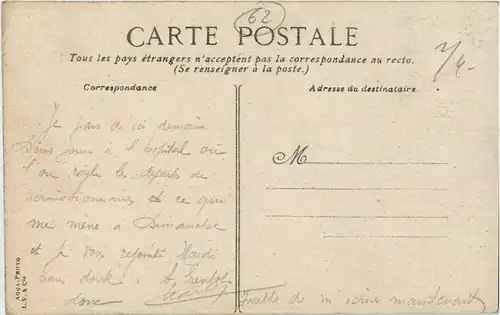 62
CARTE POSTALE
7/4-
Tous les pays étrangers n'acceptent pas la correspondance au recto.
(Se renseigner à la poste.)
Correspondance
Adresse du destinataire
Je pars d'ici demain
Deux jours à l'hopital où
l'on règle les départs de
permissionnaires et ce qui
me mène a Dimanche
et je vous rejoins Mardi
sans doute. A bientot
donc
M
Inutile de m'écrire maintenant
AQUA-PHOTO
L.V. & Cie